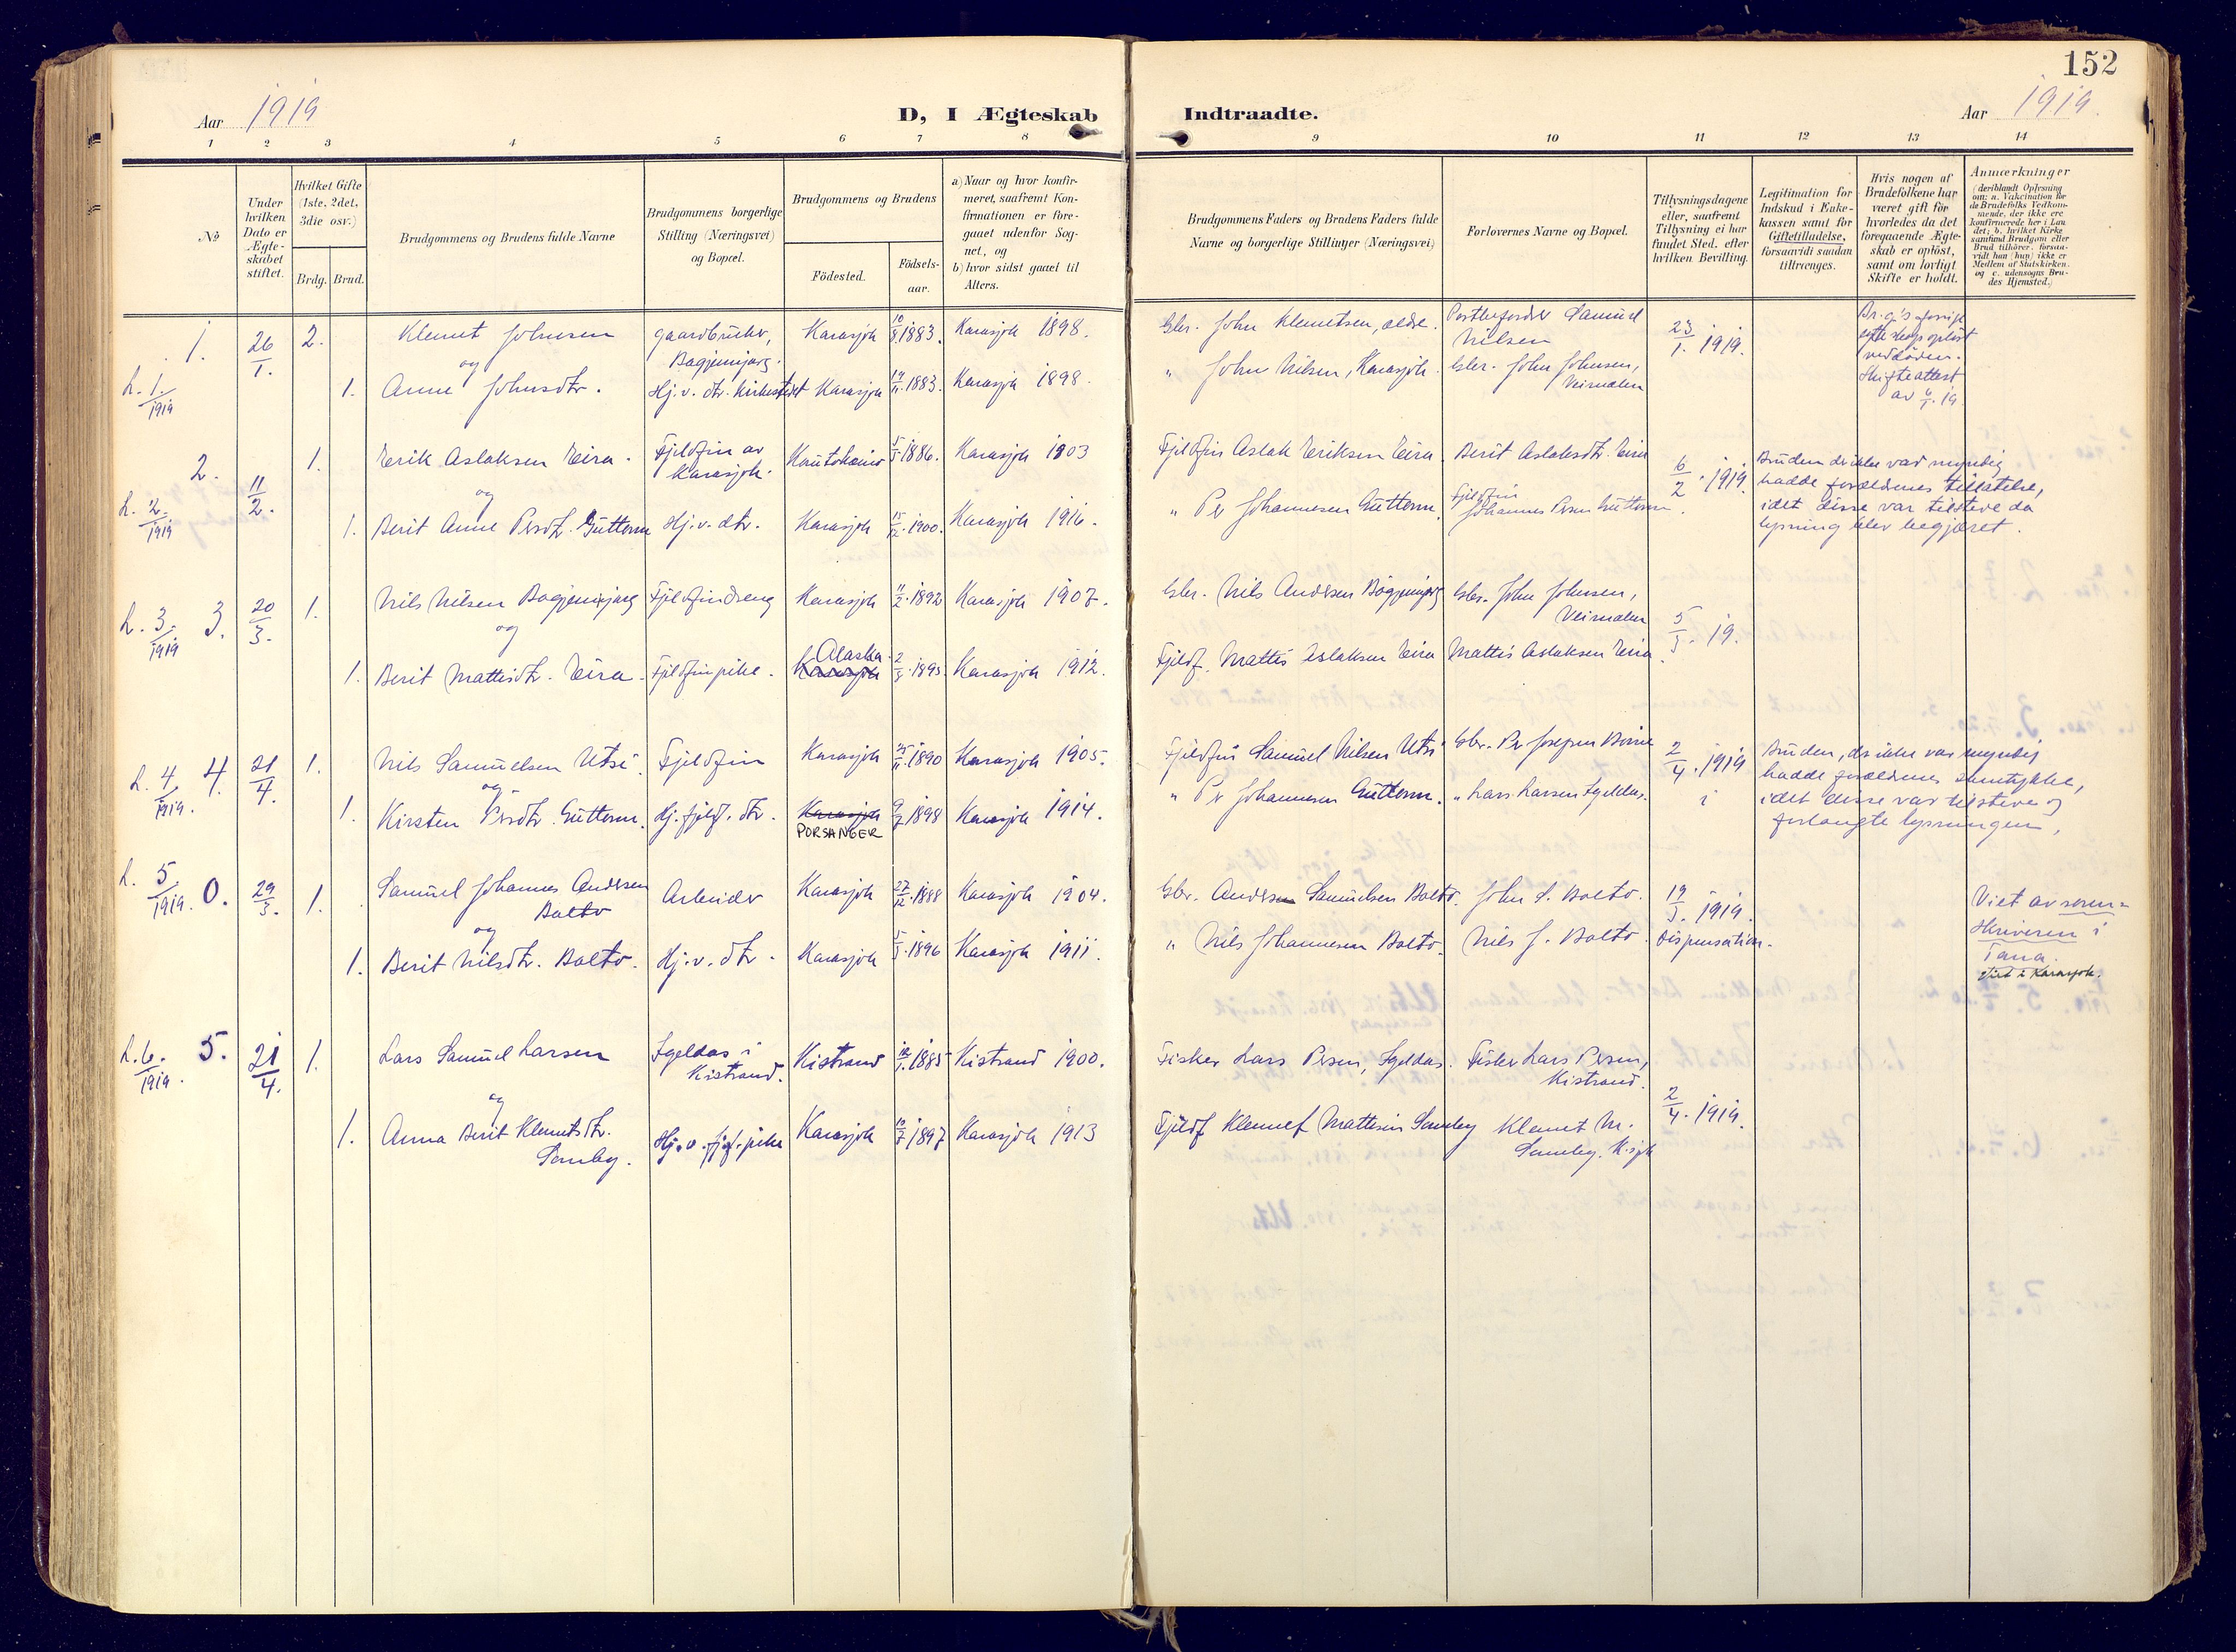 152
Aar 1919
D, I Ægteskab Indtraadte.
Aar 1919.
1 2 3 4 5 6 7 8 9 10 11 12 13 14
No
Under hvilken Dato er Ægte-skabet stiftet.
Hvilket Gifte (1ste, 2det, 3die osv.)
Brdg. Brud.
Brudgommens og Brudens fulde Navne
Brudgommens borgerlige Stilling (Næringsvei) og Bopæl.
Brudgommens og Brudens
Födested.
Födsels-aar.
a) Naar og hvor konfir-meret, saafremt Kon-firmationen er fore-gaaet udenfor Sog-net, og
b) hvor sidst gaaet til Alters.
Brudgommens Faders og Brudens Faders fulde Navne og borgerlige Stillinger (Næringsvei)
Forlovernes Navne og Bopæl.
Tillysningsdagene eller, saafremt Tillysning ei har fundet Sted, efter hvilken Bevilling.
Legitimation for Indskud i Enke-kassen samt for Giftetilladelse, forsaavidt saadan tiltrænges.
Hvis nogen af Brudefolkene har været gift før hvorledes da det foregaaende Ægte-skab er opløst, samt om lovligt Skifte er holdt.
Anmærkninger (deriblandt Oplysning om: a. Vakcination for de Brudefolks Vedkom-mende, der ikke ere konfirmerede her i Lan det; b. hvilket Kirke samfund Brudgom eller Brud tilhører, forsaa-vidt han (hun) ikke er Medlem af Statskirken. og c. udensogns Bru-des Hjemsted.)
1. 26/1. 2. Klemet Johnsen gaardbruker, Karasjok 10/8 1883. Karasjok 1898. Gbr. John Klemetsen, Postbefordrer Samuel Nilsen 23/1. 1919.
og
L. 1/1919 1. Anne Johnsdtr. Hj.v. dtr. Kirkestedet Karasjok 1883. Karasjok 1898. " John Nilsen, Karasjok. Gbr. John Johnsen, Veimalen
Skifteattest
2. 11/2. 1. Erik Aslaksen Eira. Fjeldfin av Karasjok. Kautokeino 1886. Karasjok 1903 Fjeldfin Aslak Eriksen Eira. Berit Aslaksdtr. Eira 6/2. 1919.
og
L. 2/1919 1. Berit Anne Persdtr. Guttorm Hj.v. dtr. Karasjok 15/12 1900. Karasjok 1916. " Per Johannesen Guttorm. Fjeldfin Johannes Persen Guttorm.
Bruden der ikke var myndig
hadde forældrenes tillatelse,
idet disse var tilstede da
lysning blev begjæret.
L. 3/1919 3. 20/3. 1. Nils Nilsen Bagjenjarg Fjeldfindreng Karasjok 11/2. 1892 Karasjok 1907. Gbr. Nils Andersen Bagjenjarg Gbr. John Johnsen, Veimalen 5/3. 19.
og
1. Berit Mattisdtr. Eira. Fjeldfinpike. Karasjok Alaska. 1895. Karasjok 1912. Fjeldf. Mattis Aslaksen Eira Mattis Aslaksen Eira.
L. 4/1919. 4. 21/4. 1. Nils Samuelsen Utsi. Fjeldfin Karasjok 1890 Karasjok 1905. Fjeldfin Samuel Nilsen Utsi Gbr. Per Josefsen 2/4. 1919
og
1. Kirsten Persdtr. Guttorm. Hj. fjeldf. dtr. Karasjok PORSANGER 9/7 1898 Karasjok 1914. " Per Johannesen Guttorm. " Lars Larsen Igeldas.
Bruden, der ikke var myndig
hadde forældrenes samtykke,
idet disse var tilstede og
forlangte lysningen.
L. 5/1919. 0. 29/3. 1. Samuel Johannes Andersen Balto Arbeider Karasjok 27/12. 1888 Karasjok 1904. Gbr. Anders Samuelsen Balto. John S. Balto. 19/3. 1919. Viet av soren-
skriveren i
Tana.
Viet i Karasjok.
og
1. Berit Nilsdtr. Balto. Hj.v. dtr. Karasjok 1896 Karasjok 1911. " Nils Johannesen Balto. Nils J. Balto. Dispensation.
L. 6/1919. 5. 21/4. 1. Lars Samuel Larsen Igeldas i Kistrand. Kistrand 1885 Kistrand 1900. Fisker Lars Persen, Igeldas. Fisker Lars Persen, Kistrand.
og
1. Anna Berit Klemetsdtr. Somby. Hj.v. fjf. pike Karasjok 10/7 1897 Karasjok 1913 Fjeldf Klemet Mathisen Somby Klemet M. Somby. K.sjok 2/4. 1919.